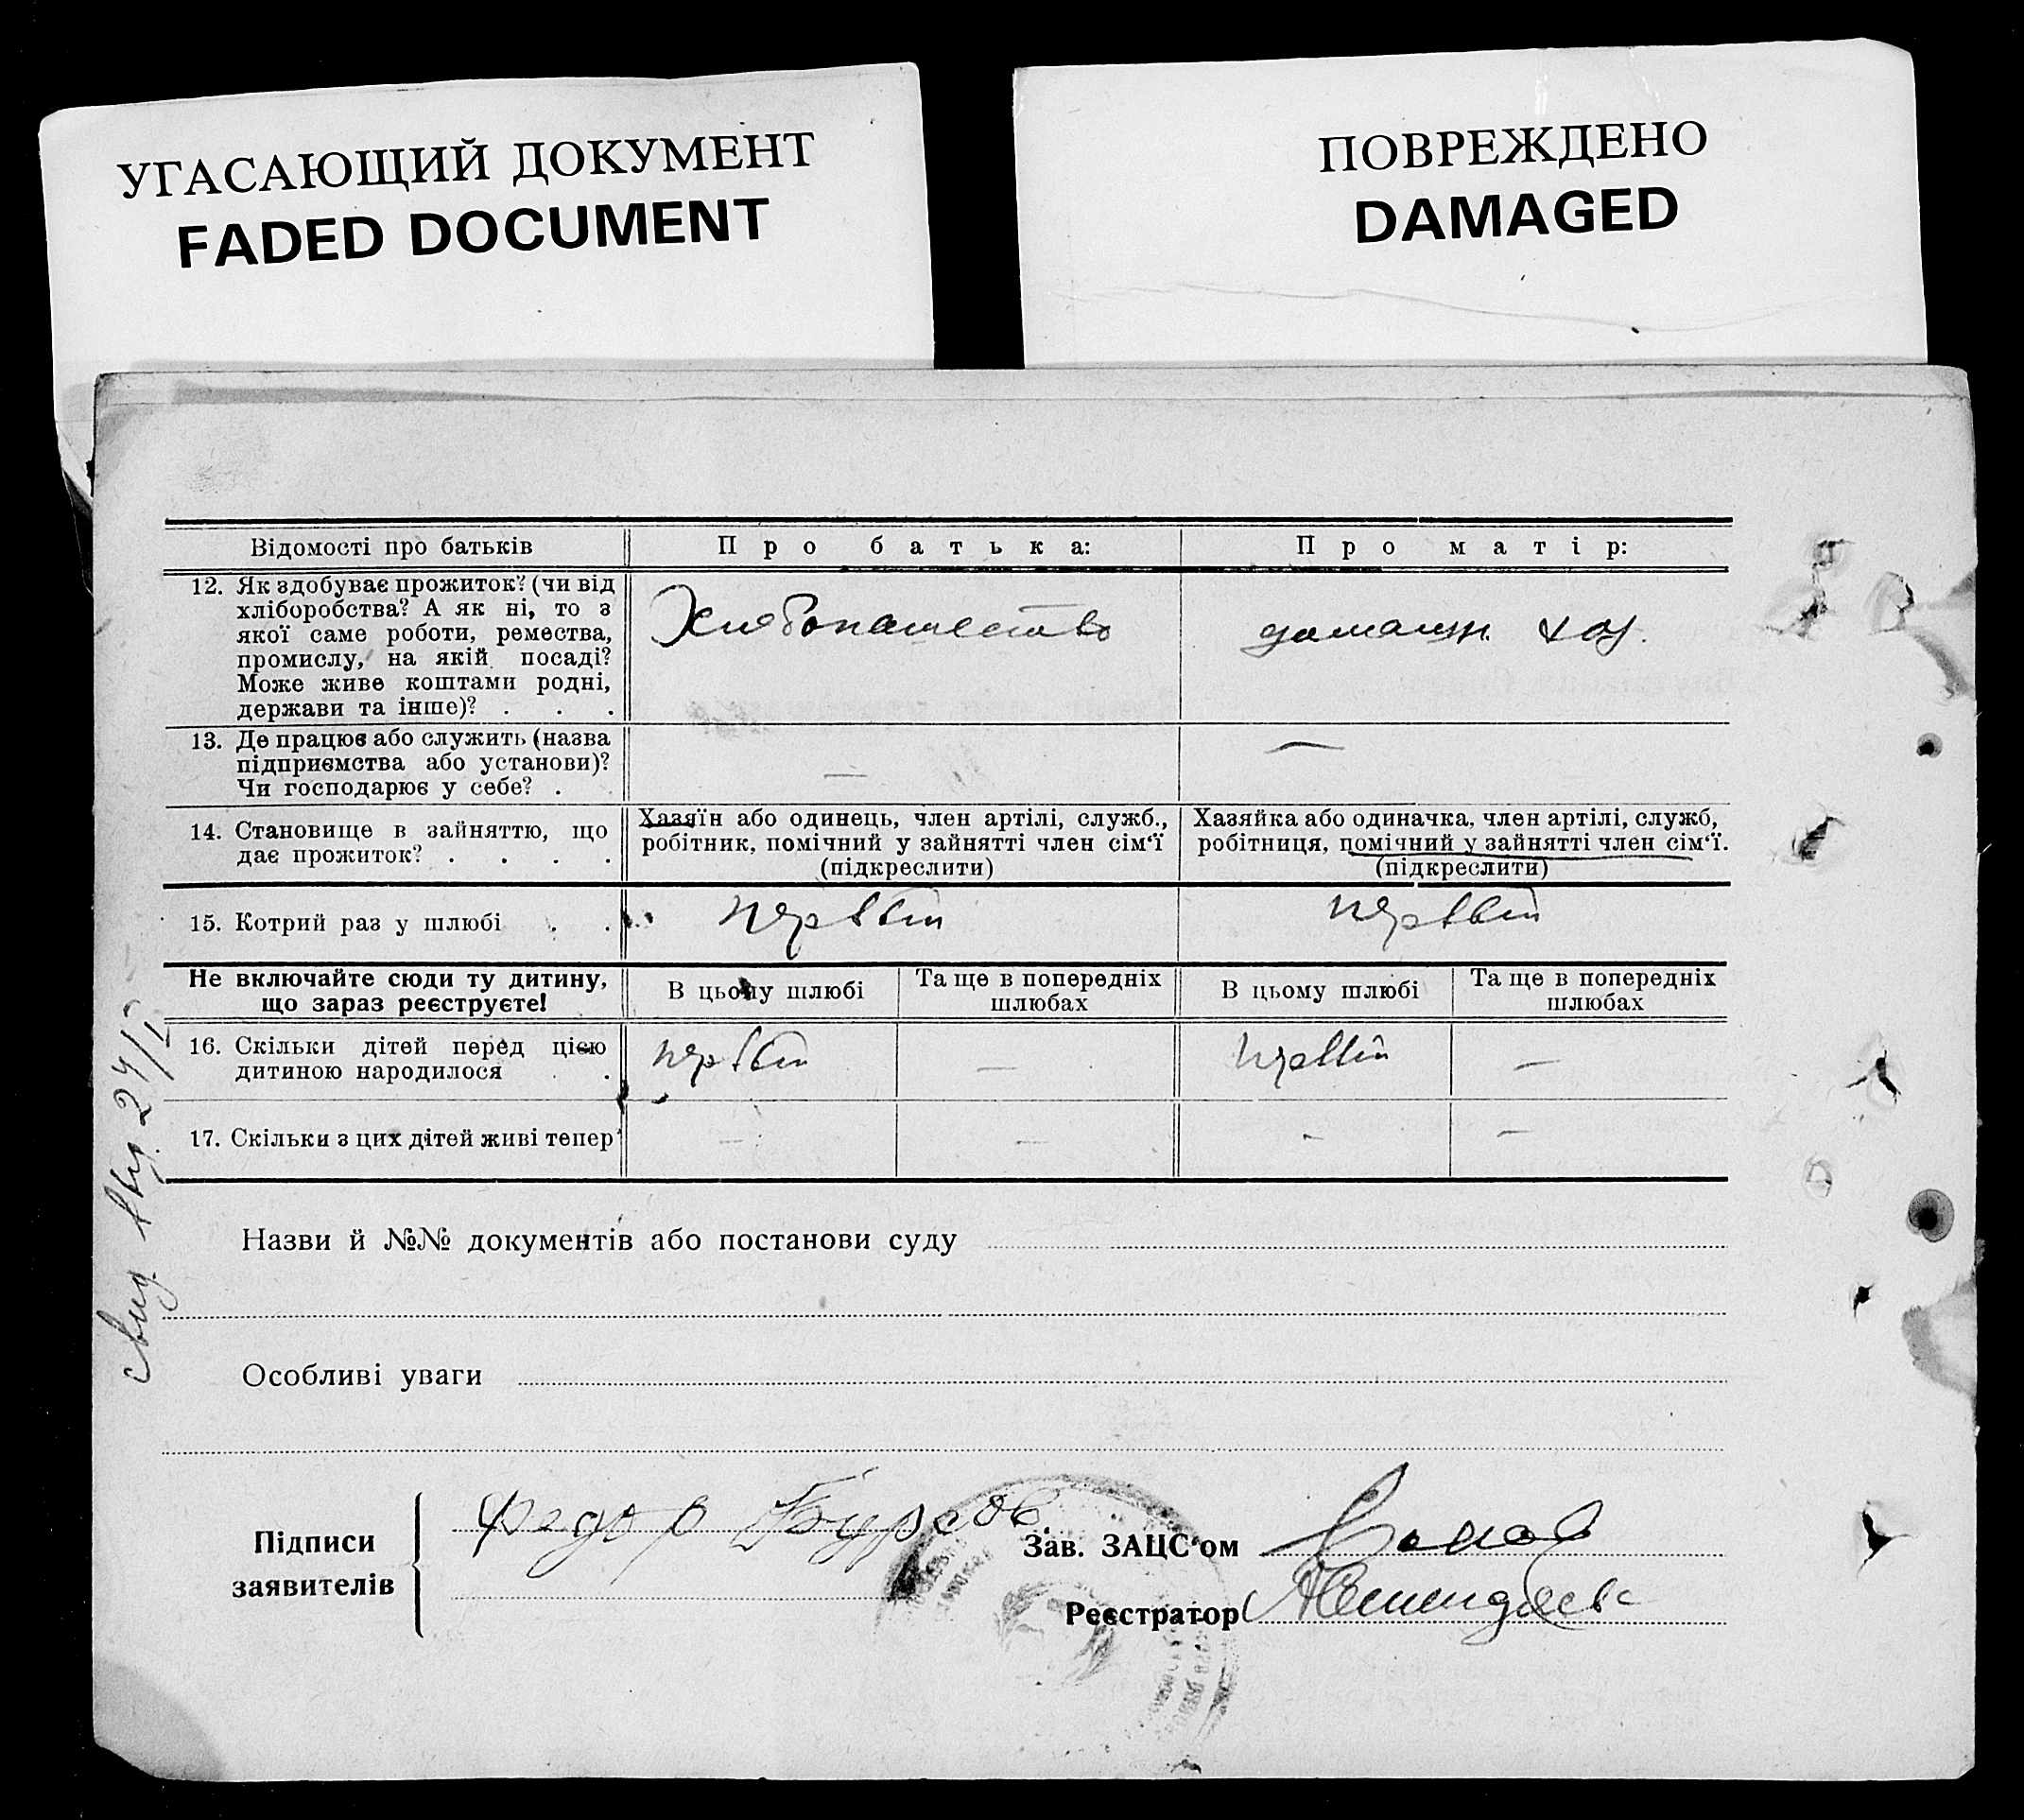 УГАСАЮЩИЙ ДОКУМЕНТ
FADED DOCUMENT
ПОВРЕЖДЕНО
DAMAGED
Відомості про батьків
Про батька:
Про матір:
12. Як здобуває прожиток? (чи від
хліборобства? А як ні, то з
якої саме роботи, ремества,
промислу, на якій посаді?
Може живе коштами родні,
держави та інше)? . . .
Хлебопашество
домашн. хоз.
13. Де працює або служить (назва
підприємства або установи)?
Чи господарює у себе? .
—
—
14. Становище в зайняттю, що
дає прожиток? . . . .
Хазяїн або одинець, член артілі, служб.,
робітник, помічний у зайнятті член сім'ї
(підкреслити)
Хазяйка або одиначка, член артілі, служб,
робітниця, помічний у зайнятті член сім'ї.
(підкреслити)
15. Котрий раз у шлюбі . .
первый
первый
Не включайте сюди ту дитину,
що зараз реєструєте!
В цьому шлюбі
Та ще в попередніх
шлюбах
В цьому шлюбі
Та ще в попередніх
шлюбах
16. Скільки дітей перед цією
дитиною народилося . .
первый
—
первый
—
17. Скільки з цих дітей живі тепер
—
—
-
—
Назви й №№ документів або постанови суду
Особливі уваги
Підписи
заявителів
Федор Бурсов
Зав. ЗАЦС'ом
Реєстратор
свид. выд. 24/I